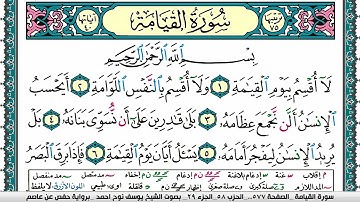 سُورَةُ القِيَامَةِ
بِسْمِ اللَّهِ الرَّحْمَٰنِ الرَّحِيمِ
لَا أُقْسِمُ بِيَوْمِ الْقِيَٰمَةِ ١ وَلَا أُقْسِمُ بِالنَّفْسِ اللَّوَّامَةِ ٢ أَيَحْسَبُ
الْإِنسَٰنُ أَلَّن نَّجْمَعَ عِظَامَهُۥ ٣ بَلَىٰ قَٰدِرِينَ عَلَىٰٓ أَن نُّسَوِّىَ بَنَانَهُۥ ٤ بَلْ
يُرِيدُ الْإِنسَٰنُ لِيَفْجُرَ أَمَامَهُۥ ٥ يَسْـَٔلُ أَيَّانَ يَوْمُ الْقِيَٰمَةِ ٦ فَإِذَا بَرِقَ الْبَصَرُ
سورة القيامة . الصفحة ٥٧٧ . الحزب ٥٨ . الجزء ٢٩ . بصوت الشيخ يوسف نوح احمد . برواية حفص عن عاصم